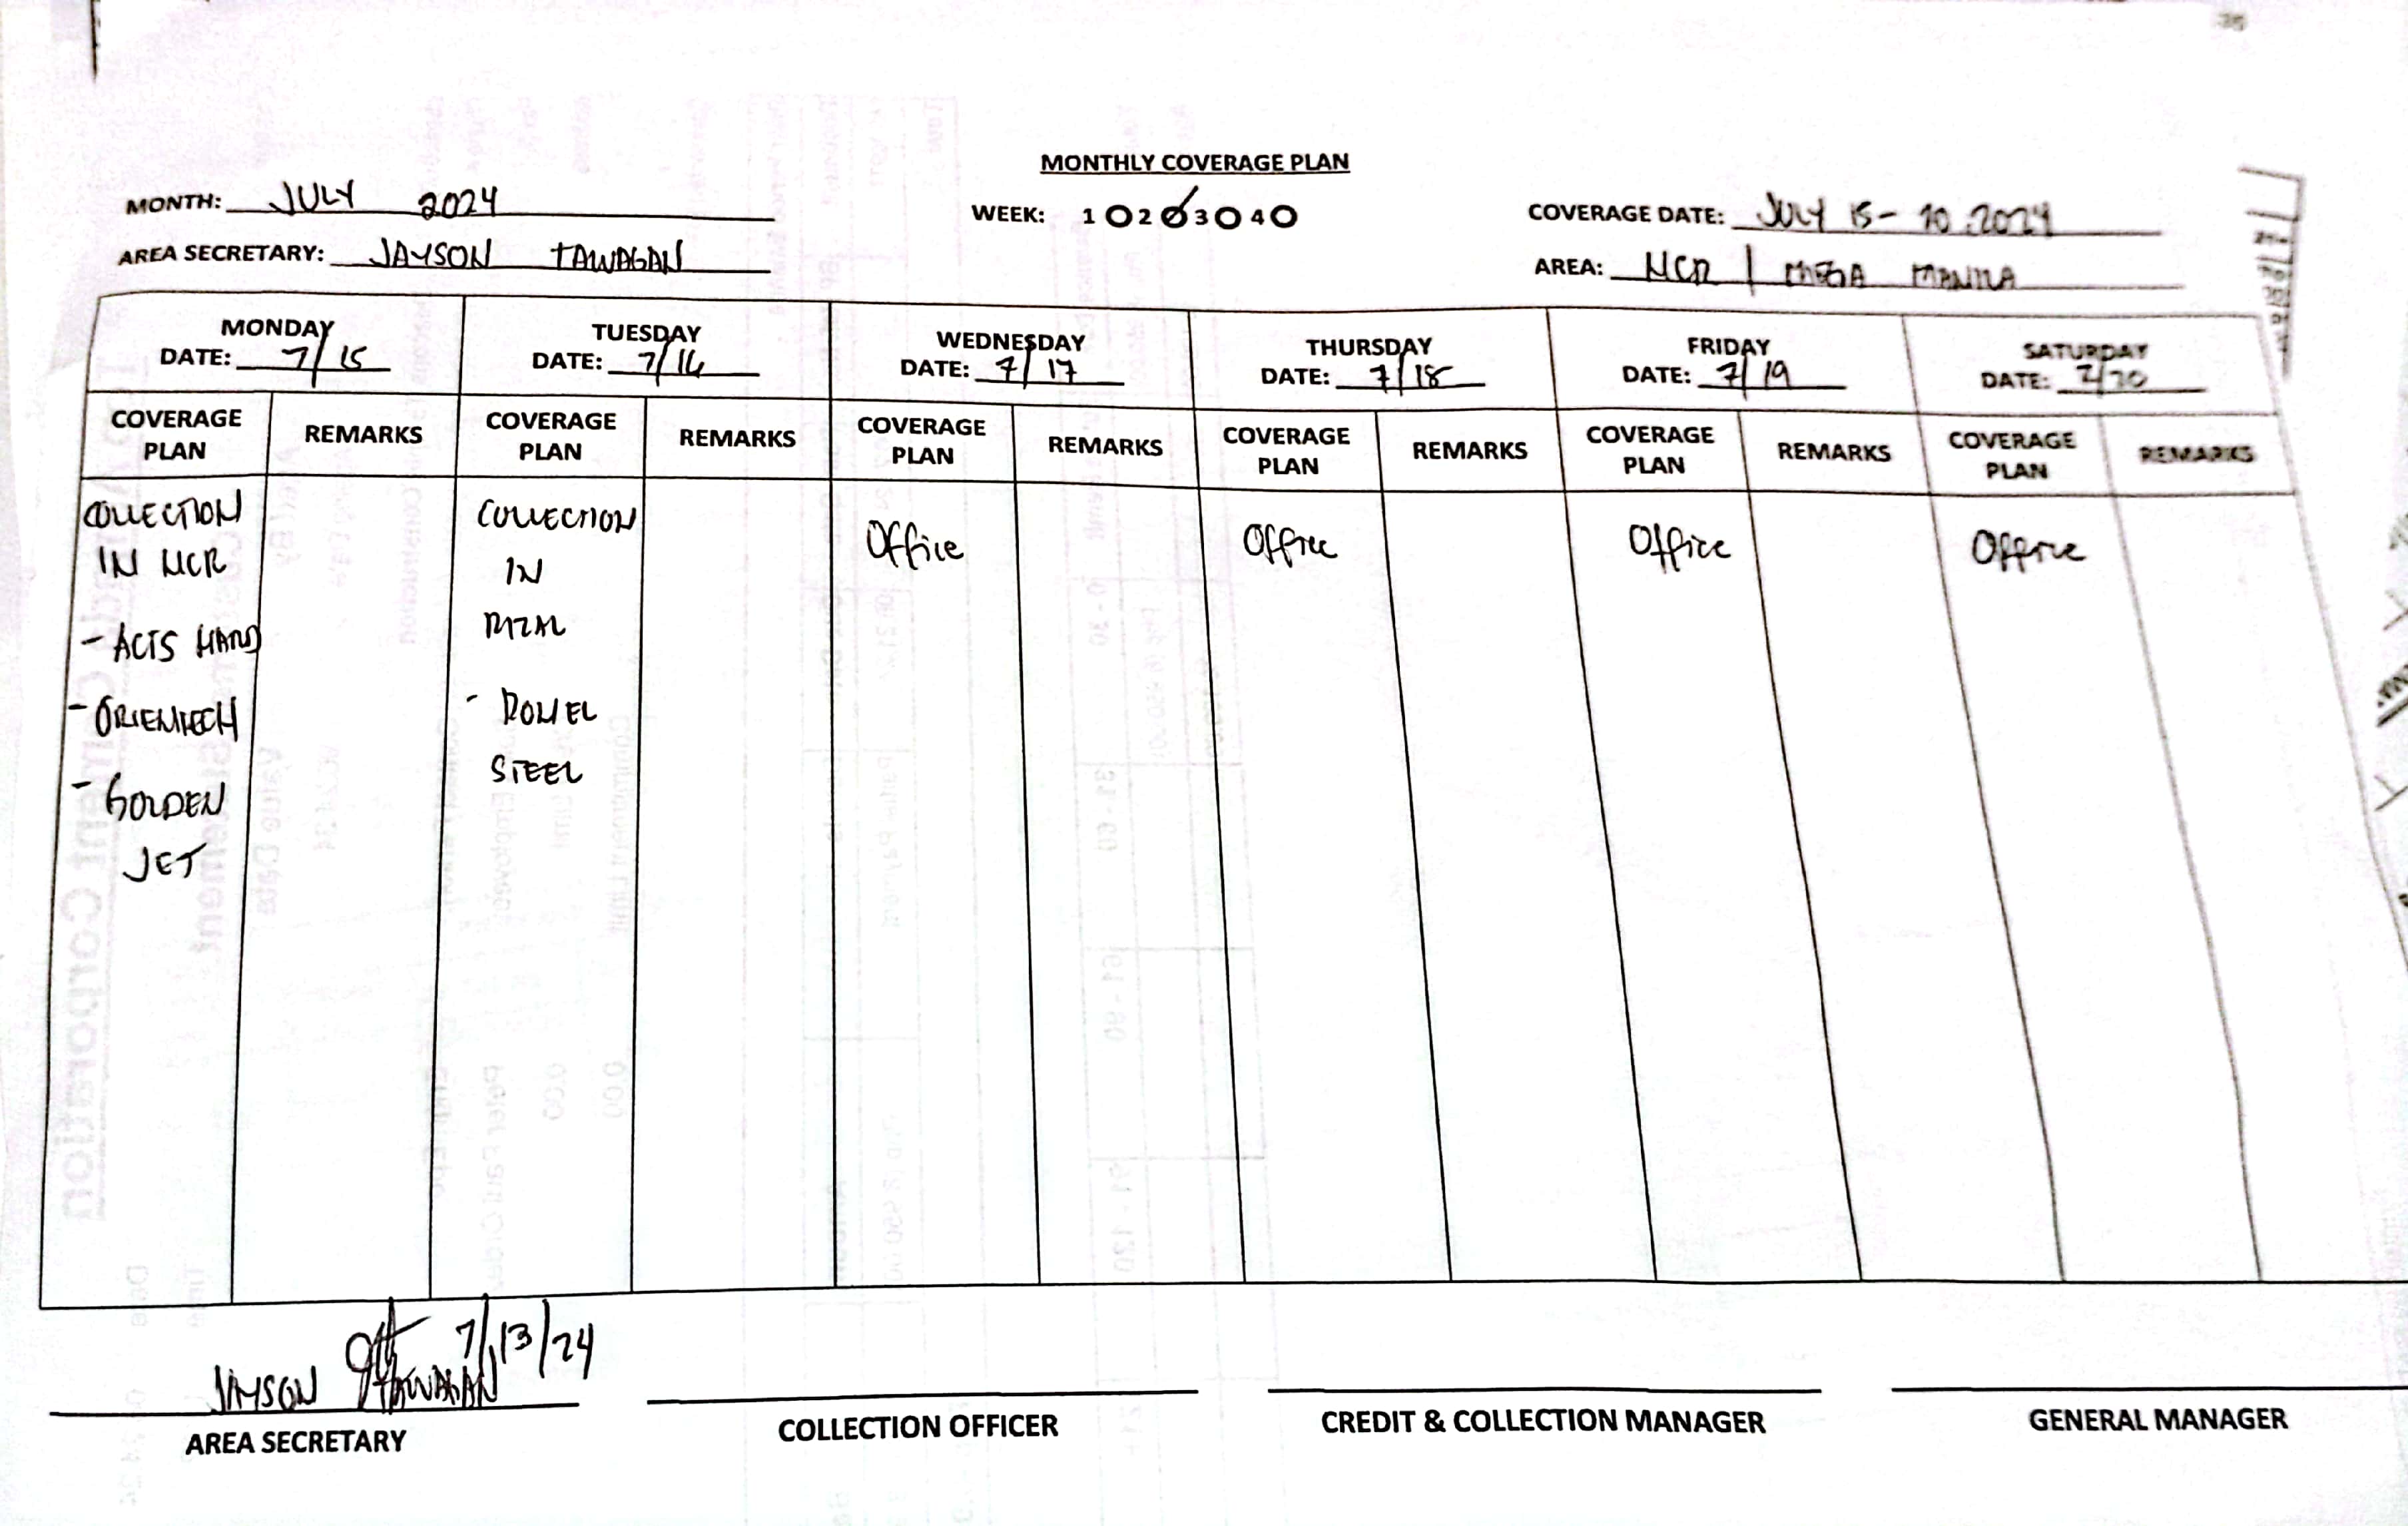 MONTHLY COVERAGE PLAN
MONTH: JULY 2024
WEEK: 1 O 2 O 3 O 4 O
COVERAGE DATE: JULY 15 - 20, 2024
AREA SECRETARY: JAYSON TAWAGAN
AREA: NCR | MEGA MANILA
MONDAY TUESDAY WEDNESDAY THURSDAY FRIDAY SATURDAY
DATE: 7/15 DATE: 7/16 DATE: 7/17 DATE: 7/18 DATE: 7/19 DATE: 7/20
COVERAGE PLAN REMARKS COVERAGE PLAN REMARKS COVERAGE PLAN REMARKS COVERAGE PLAN REMARKS COVERAGE PLAN REMARKS COVERAGE PLAN REMARKS
COLLECTION
IN NCR
- ACTS HARD
- ORIENTECH
- GOLDEN
JET
COLLECTION
IN
RIZAL
- RONEL
STEEL
Office
Office
Office
Office
7/13/24
JAYSON TAWAGAN
AREA SECRETARY
COLLECTION OFFICER
CREDIT & COLLECTION MANAGER
GENERAL MANAGER